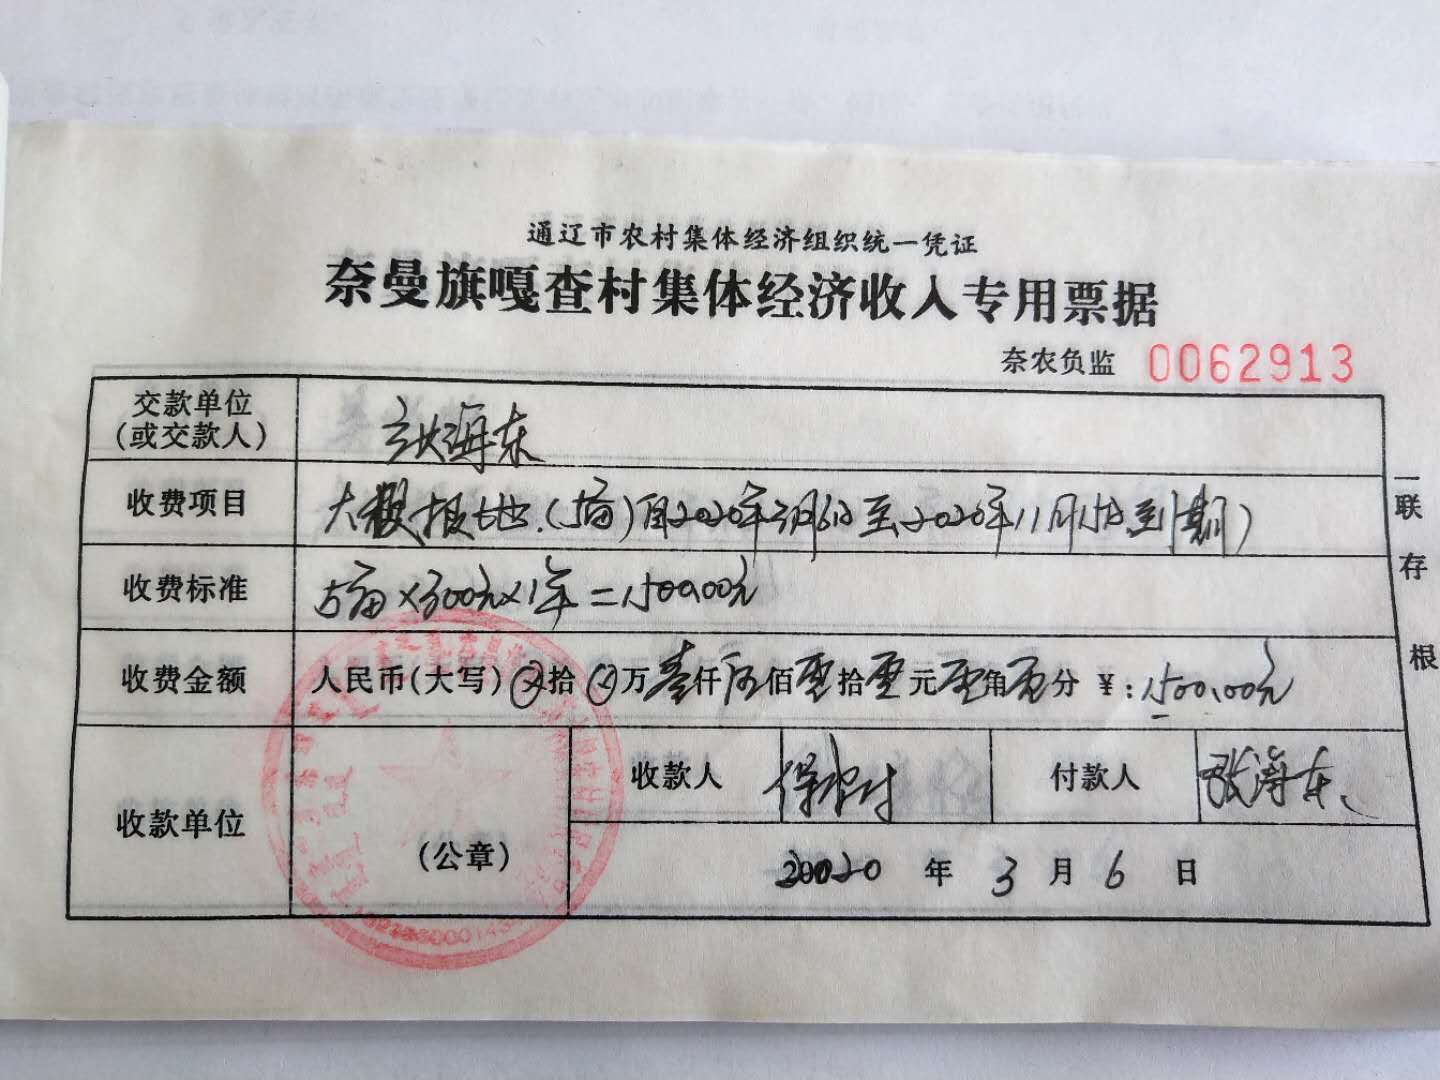 通辽市农村集体经济组织统一凭证
奈曼旗嘎查村集体经济收入专用票据
奈农负监 0062913
交款单位
(或交款人)
张海东
收费项目
地.(5亩)自2020年3月6日至2020年11月15日到期)
收费标准
5亩×300元×1年=1500.00元
收费金额
人民币(大写)⊗拾⊗万壹仟伍佰零拾零元零角零分 ¥:1500.00元
收款单位
(公章)
收款人
付款人
张海东
2020 年 3 月 6 日
一联存根